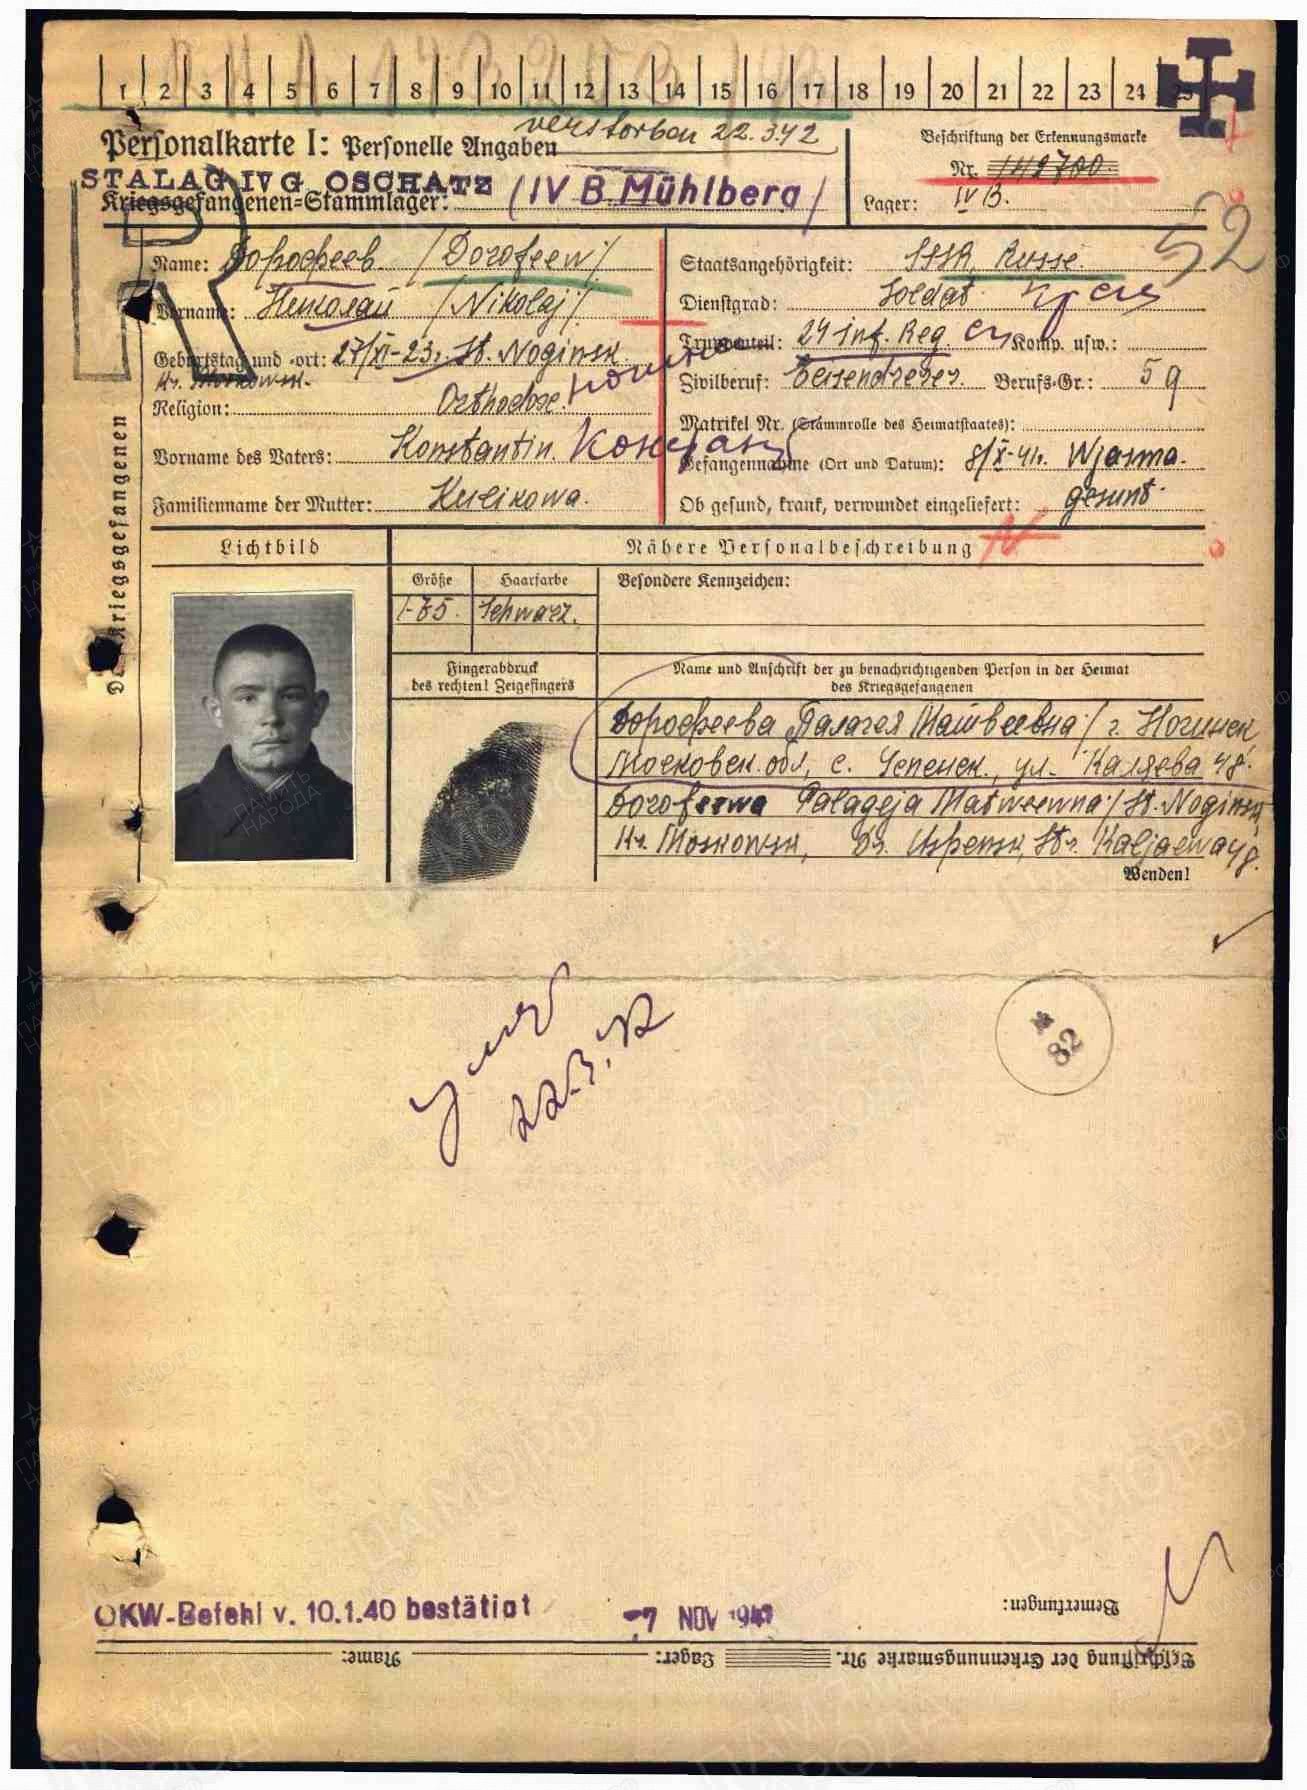 1 2 3 4 5 6 7 8 9 10 11 12 13 14 15 16 17 18 19 20 21 22 23 24 25
Personalkarte I: Personelle Angaben verstorben 22.3.42
Beschriftung der Erkennungsmarke
Nr. 142700
STALAG IV G OSCHATZ (IV B. Mühlberg)
Kriegsgefangenen-Stammlager:
Lager: IV B.
52
R
Des Kriegsgefangenen
Name: Дорофеев. /Dorofeew/
Staatsangehörigkeit: SSSR, Russe.
Vorname: Николай /Nikolaj/
Dienstgrad: Soldat
Geburtstag und -ort: 27/XI-23. St. Noginsk.
Kr. Moskowsk.
Truppenteil: 24 inf. Reg. Komp. usw.:
Zivilberuf: Eisendreher. Berufs-Gr.: 5 9
Religion: Orthodox.
Matrikel Nr. (Stammrolle des Heimatstaates):
Vorname des Vaters: Konstantin.
Gefangennahme (Ort und Datum): 8/X-41. Wjasma.
Familienname der Mutter: Kulikowa.
Ob gesund, krank, verwundet eingeliefert: gesunt.
Lichtbild
Nähere Personalbeschreibung
Größe Haarfarbe Besondere Kennzeichen:
Schwarz.
Fingerabdruck
des rechten! Zeigefingers
Name und Anschrift der zu benachrichtigenden Person in der Heimat
des Kriegsgefangenen
Дорофеева Палагея Матвеевна / г. Ногинск
Московск. обл., с. Успенск., ул. Каляева 48.
Dorofeewa Palageja Matweewna / St. Noginsk,
Kr. Moskowsk, Ds. Uspensk, Str. Kaljaewa 48.
Wenden!
22.3.42
№ 82
OKW-Befehl v. 10.1.40 bestätigt
-7 NOV 1941
Bemerkungen:
Beschriftung der Erkennungsmarke Nr. Lager: Name:
ПАМЯТЬ НАРОДА
ЦАМО РФ